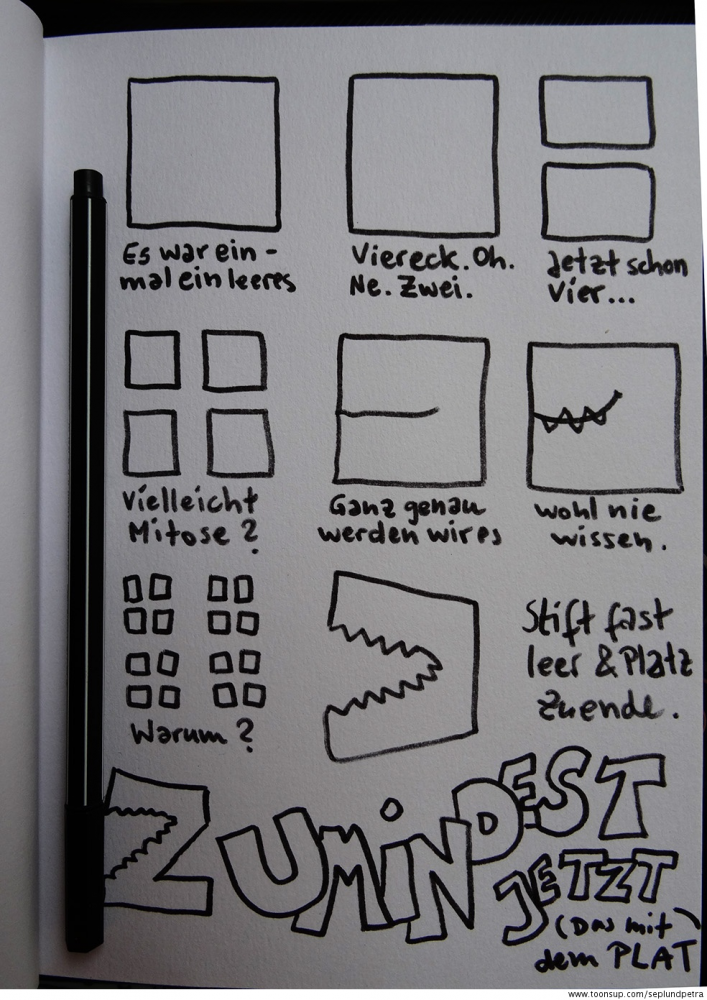 Es war ein-
mal ein leeres
Viereck. Oh.
Ne. Zwei.
Jetzt schon
Vier...
Vielleicht
Mitose?
Ganz genau
werden wir es
wohl nie
wissen.
Warum?
Stift fast
leer & Platz
Zuende.
ZUMINDEST
JETZT
(Das mit
dem PLAT
www.toonsup.com/seplundpetra